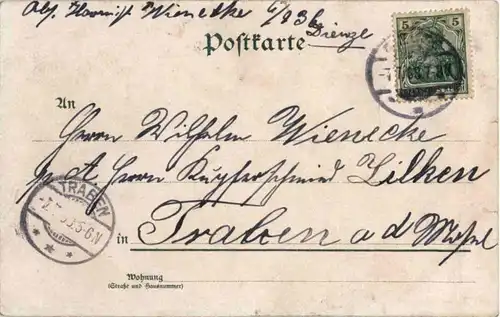 Abs. Hornist Wienecke 6/136
Dieuze
Postkarte
5 5
An
Herrn Wilhelm Wienecke
p A Herrn Kupferschmied Lilken
TRABEN
in Traben a d Mosel
Wohnung
(Straße und Hausnummer)